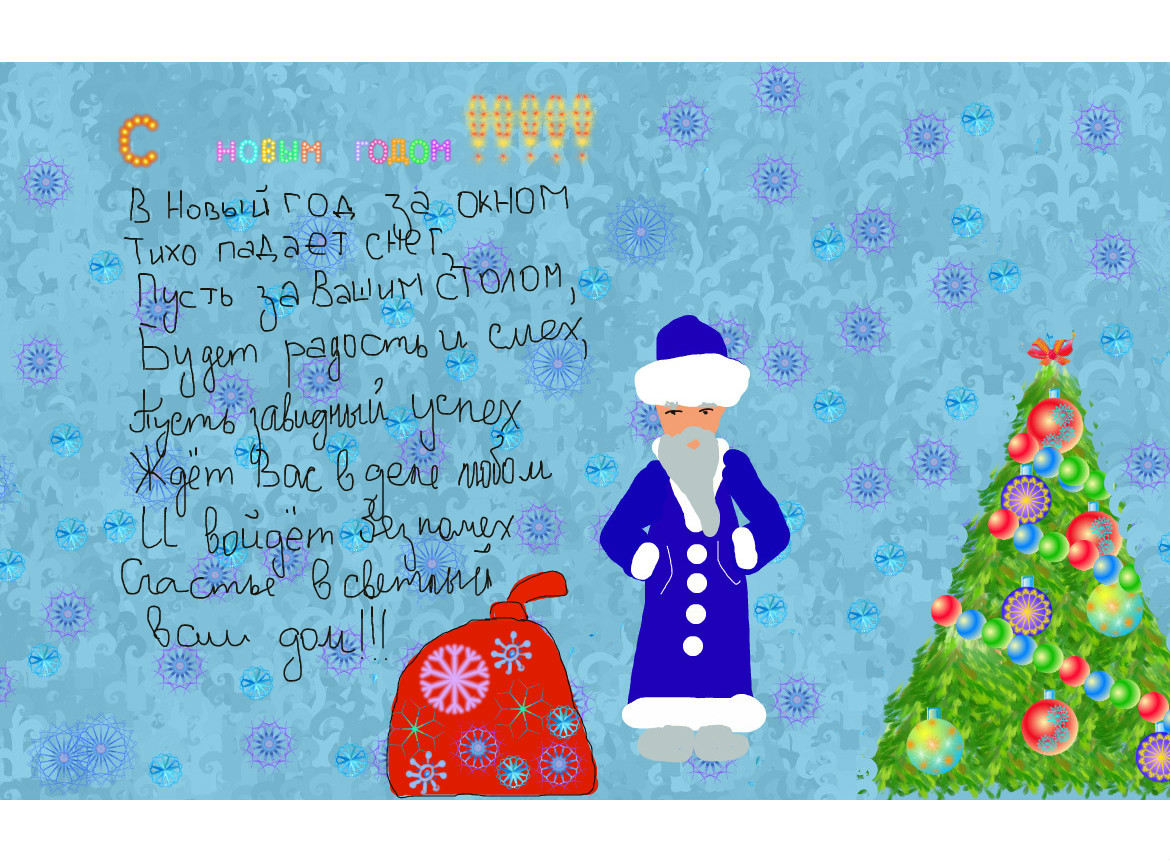 С новым годом !!!!!
В Новый год за окном
Тихо падает снег,
Пусть за Вашим столом,
Будет радость и смех,
Пусть завидный успех
Ждёт Вас в деле любом
И войдёт без помех
Счастье в светлый
ваш дом!!!